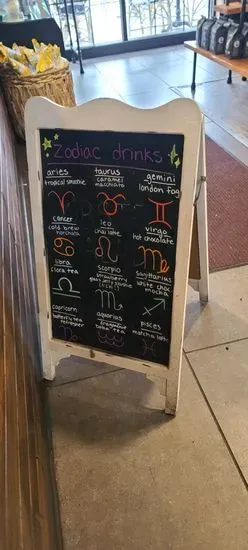 Zodiac drinks
aries
tropical smoothie
taurus
caramel macchiato
gemini
london fog
cancer
cold brew horchata
leo
chai latte
virgo
hot chocolate
libra
scorpio
strawberry
sagittarius
white choc mocha
capricorn
butterfly tea
aquarius
boba tea
pisces
matcha latte